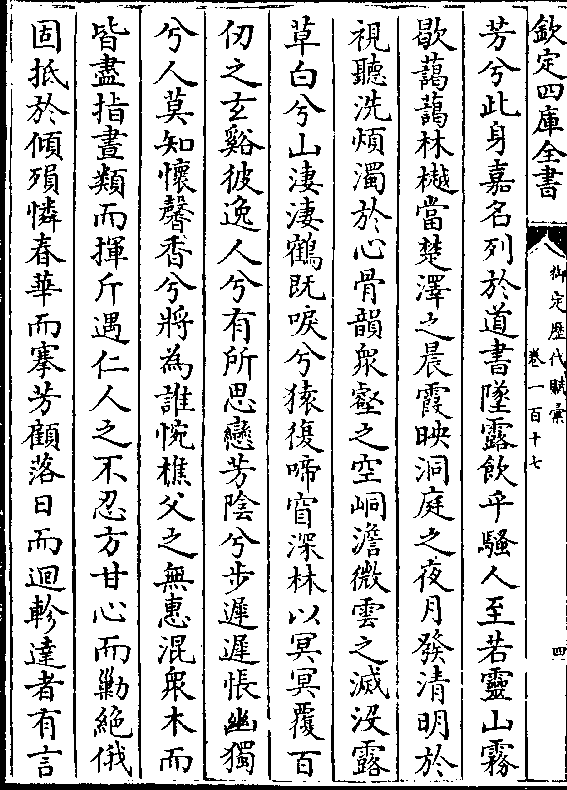 欽定四庫全書
御定歴代賦彚
卷一百十七
四
芳兮此身嘉名列於道書墜露飲乎騷人至若靈山霧
歇藹藹林樾當楚澤之晨霞映洞庭之夜月發清明於
視聽洗煩濁於心骨韻衆壑之空峒澹微雲之滅没露
草白兮山淒淒鶴既唳兮猿復啼窅深林以冥冥覆百
仞之玄谿彼逸人兮有所思戀芳陰兮步遲遲悵幽獨
兮人莫知懷馨香兮將為誰惋樵父之無惠混衆木而
皆盡指晝類而揮斤遇仁人之不忍方甘心而勦絶俄
固抵於傾殞憐春華而搴芳顧落日而迴軫達者有言